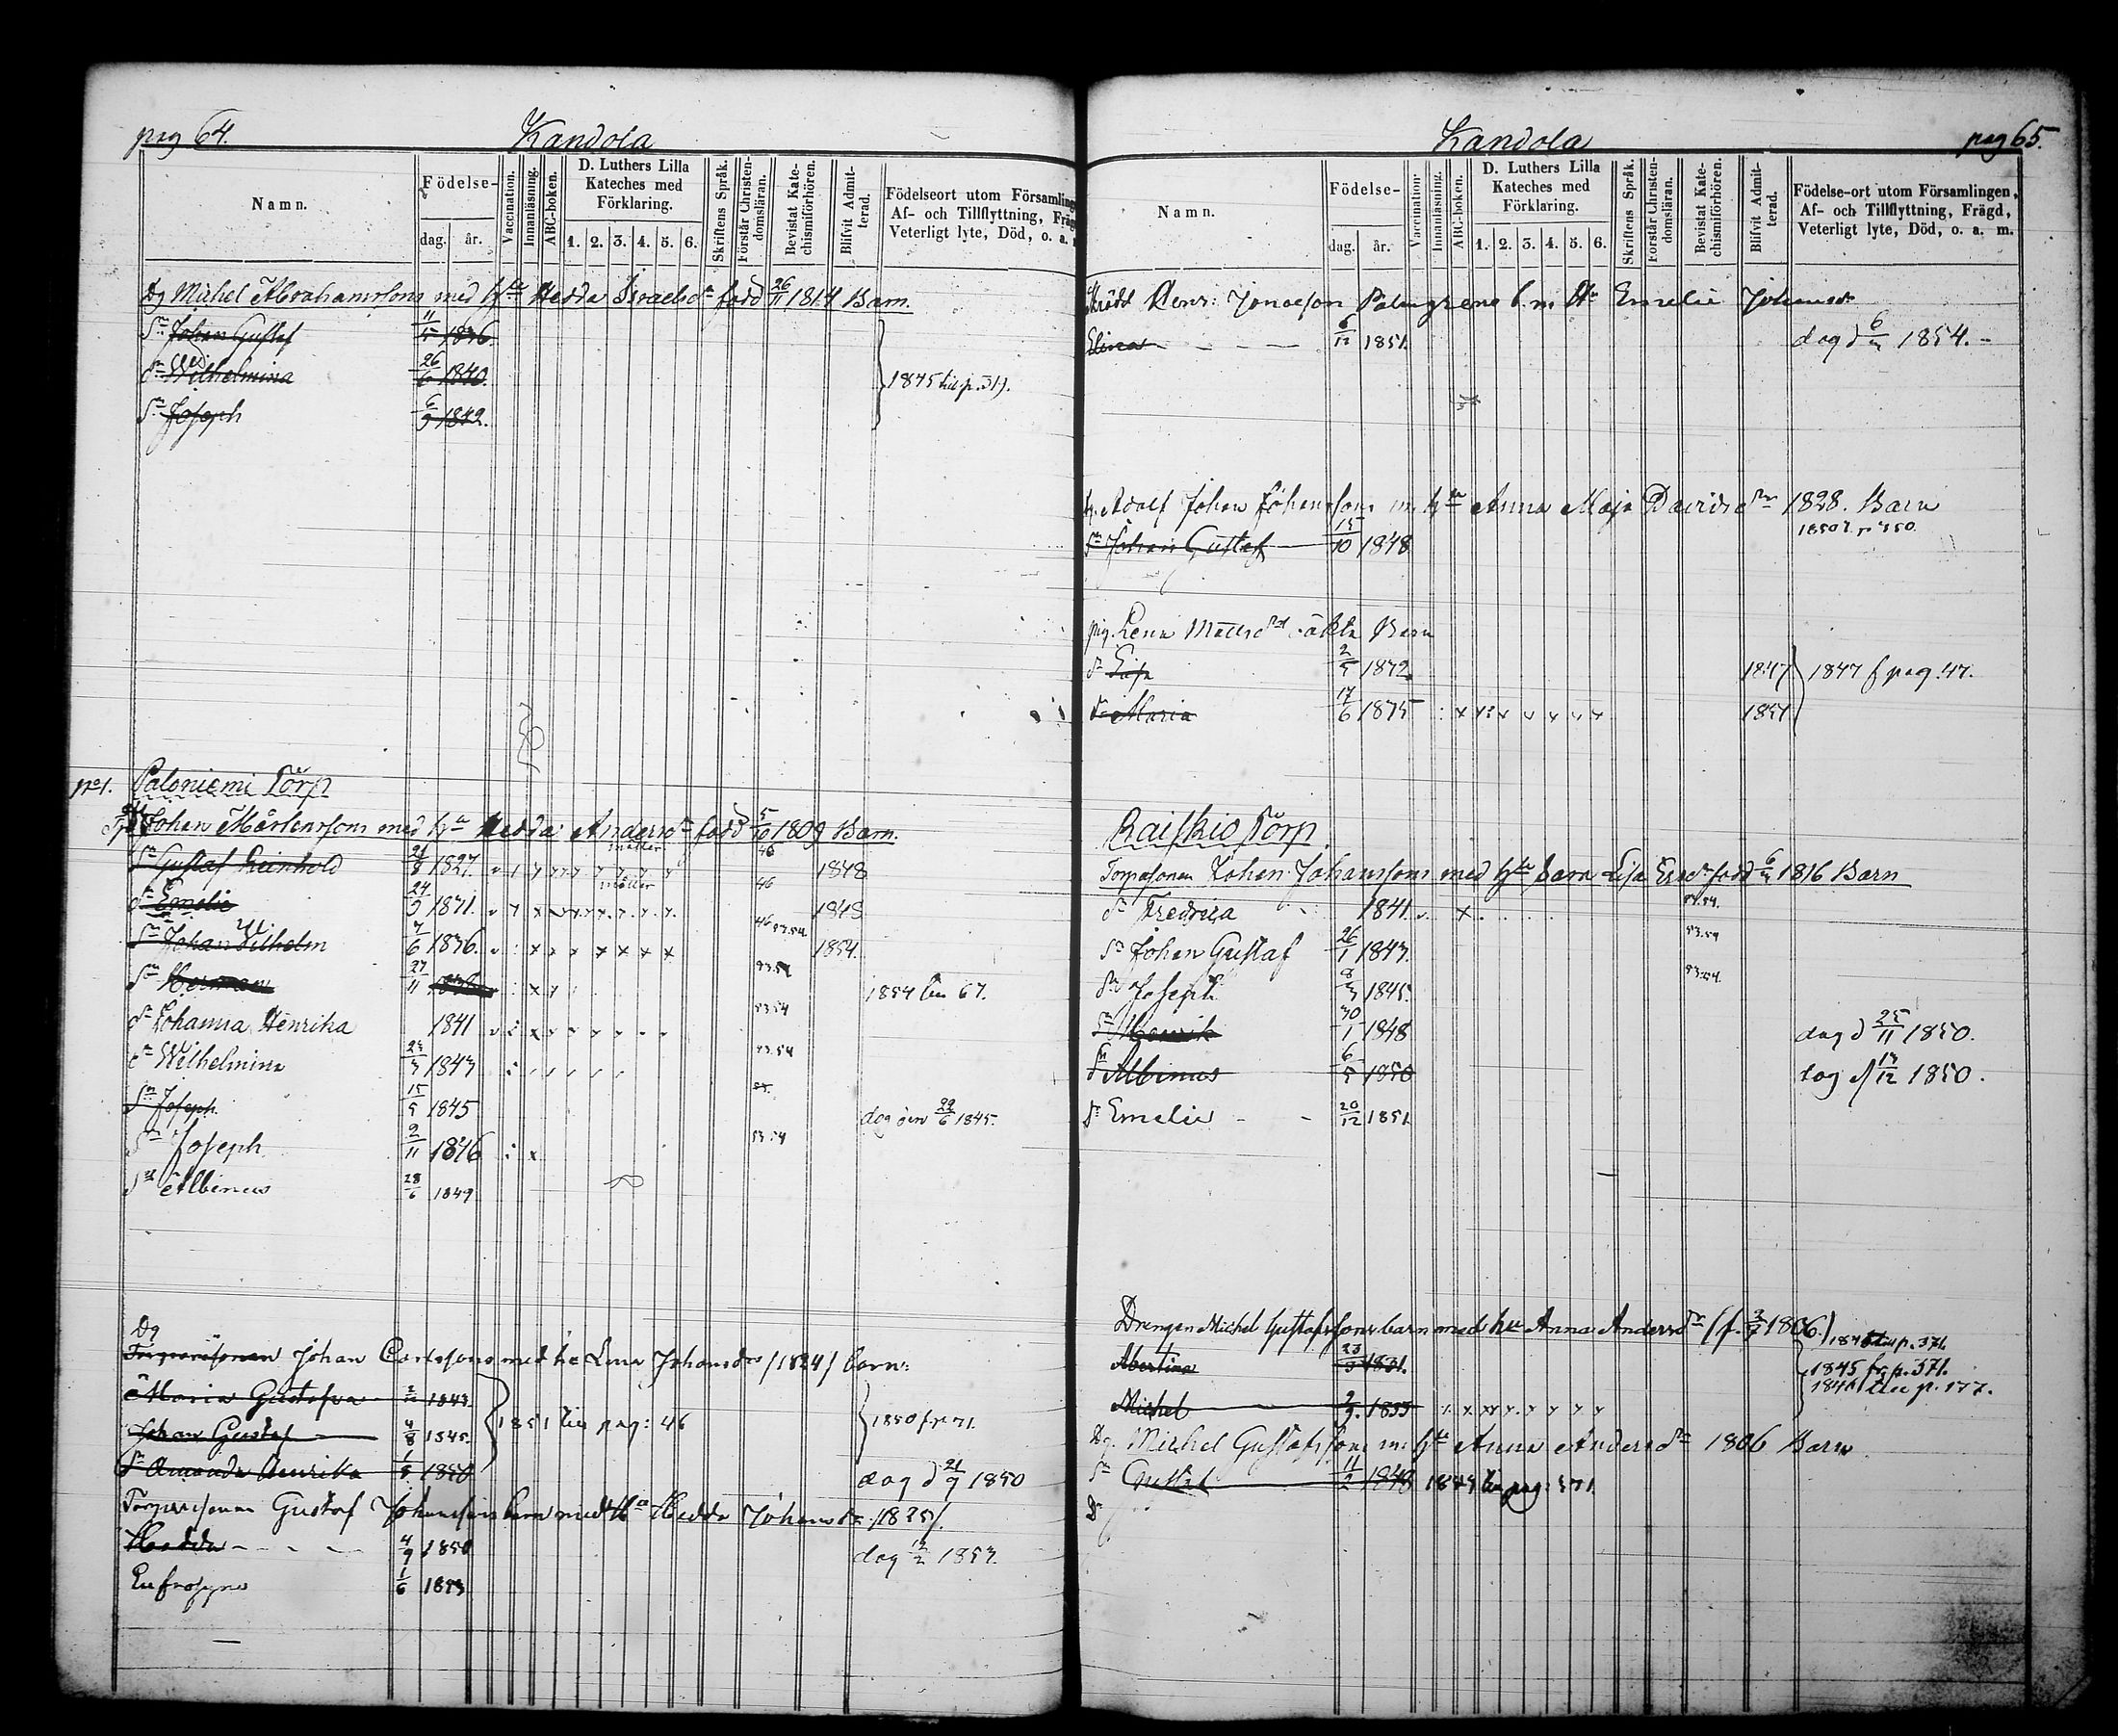 pag 64.
Kandola
Namn.
Födelse-
dag.
år.
Vaccination.
Innanläsning.
ABC-boken.
D. Luthers Lilla
Kateches med
Förklaring.
1. 2. 3. 4. 5. 6.
Skriftens Språk.
Förstår Christen-
domsläran.
Bevistat Kate-
chismiförhören.
Blifvit Admit-
terad.
Födelseort utom Församling
Af- och Tillflyttning, Fräg
Veterligt lyte, Död, o. a.
Dg Michel Abrahamssons med hu Hedda Israelsdr född 26/11 1814 Barn.
Sn Johan Gustaf 11/5 1836.
dr Wilhelmina 26/6 1840.
1845 till p.
Sn Joseph 6/9 1842.
No 1. Paloniemi Torp
Johan Mårtenssons med hu Hedda Andersdr född 5/10 1809 Barn.
Sn Gustaf Reinhold 21/8 1827. 46 1848
dr Emelie 24/9 1831. 46 1848
Sn Johan Wilhelm 7/6 1836. 46 53.54 1854.
Sn Herman 27/11 53.54 1854 67.
dr Johanna Henrika 1841 53.54
dr Wilhelmina 23/3 1843 53.54
Sn Joseph 15/5 1845 dog den 22/6 1845.
Sn Joseph 2/11 1846 53.54
Sn Albinus 28/6 1849
Dg
Torparsonen Johan Carlssons med hu Lena Johansdr /1824/ barn:
Maria Gustafva 1843
Johan Gustaf 4/8 1845. 1851 till pag: 46 1850 fr 71.
dr Amanda Henrika 1/5 1850 dog d 21/9 1850
Torparsonen Gustaf Johanssons barn med Hu Hedda Johansdr /1825/.
Hedda 4/9 1850 dog 12/2 1853.
Eufrosyne 1/6 1853
Kandola
pag 65.
Namn.
Födelse-
dag.
år.
Vaccination.
Innanläsning.
ABC-boken.
D. Luthers Lilla
Kateches med
Förklaring.
1. 2. 3. 4. 5. 6.
Skriftens Språk.
Förstår Christen-
domsläran.
Bevistat Kate-
chismiförhören.
Blifvit Admit-
terad.
Födelse-ort utom Församlingen,
Af- och Tillflyttning, Frägd,
Veterligt lyte, Död, o. a. m.
Henr: Jonasson Palmgrens b. m Hu Emelie Johansdr
Elina 6/12 1851. dog d 1854.
Adolf Johan Johanssons m. hu Anna Maja Davidsdr 1828. Barn
Sn Johan Gustaf 15/10 1848 1850
pig. Lena Mattsdr oäkta Barn
dr Lisa 2/5 1847 1847 f pag. 47.
dr Maria 17/6 1835 1851
Raiskio Torp.
Torparsonen Johan Johanssons med hu Sara Lisa Ersdr född 1816 Barn
dr Fredrica 1841. 53.54.
Sn Johan Gustaf 26/1 1843. 53.54
Sn Joseph 8/3 1845. 53.54.
Sn Henrik 30/1 1848 dog d 25/11 1850.
Sn Albinus 6/5 1850 dog d 13/12 1850.
dr Emelie 20/12 1851
Drengen Michel Gustafssons barn med hu Anna Andersdr (f. 1806.)
Albertina 23/3 1831. 1845 fr p. 371.
Michel 1835
Dg. Michel Gustafssons m: hu Anna Andersdr 1806 Barn
Sn Gustaf 11/2 1848 1849 till pag: 371
Dr